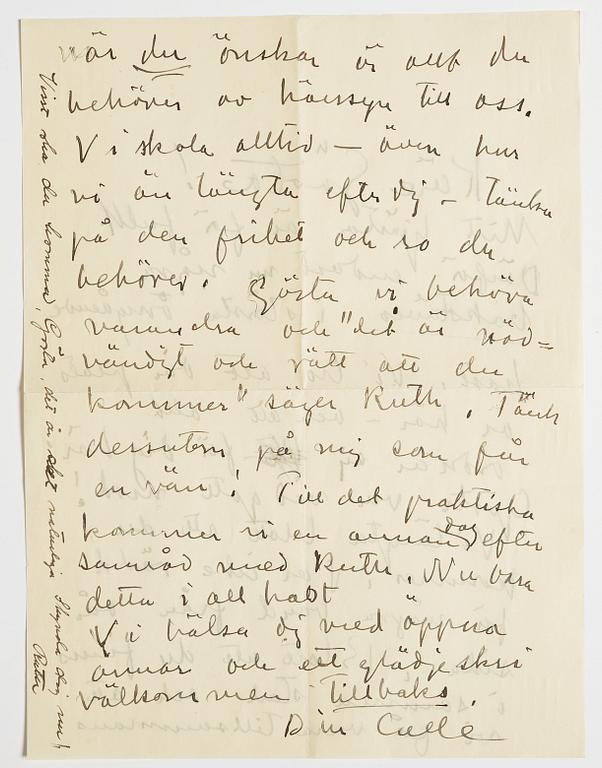 är du önskar är allt du
behöver av hänsyn till oss.
Vi skola alltid – även hur
vi än längta efter dig – tänka
på den frihet och ro du
behöver. Gösta vi behöva
varandra och "det är nöd=
vändigt och rätt att du
kommer" säger Ruth. Tänk
dessutom på mig som får
en vän! Till det praktiska
kommer vi en annan dag efter
samråd med Ruth. Nu bara
detta i all hast
Vi hälsa dig med öppna
armar och ett glädjeskri
välkommen tillbaks.
Din Calle
Visst ska du komma, Gösta, det är det naturliga Skynda dig nu!